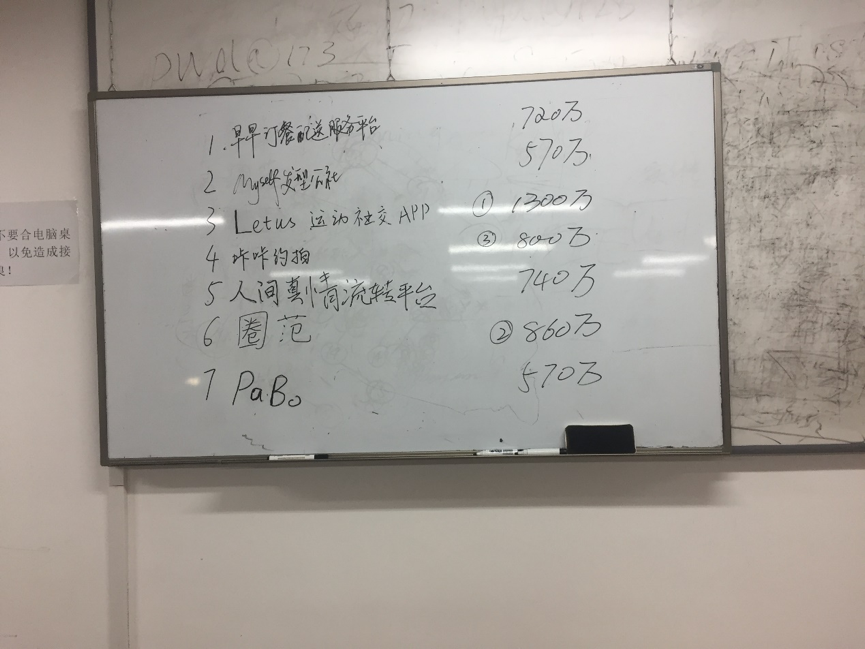 1. 早早订餐配送服务平台 720万
2 Myself发型 570万
3 Letus 运动社交 APP ① 1300万
4 咔咔约拍 ③ 800万
5 人间真情流转平台 740万
6 圈范 ② 860万
7 PaBo 570万
不要合电脑桌
以免造成接